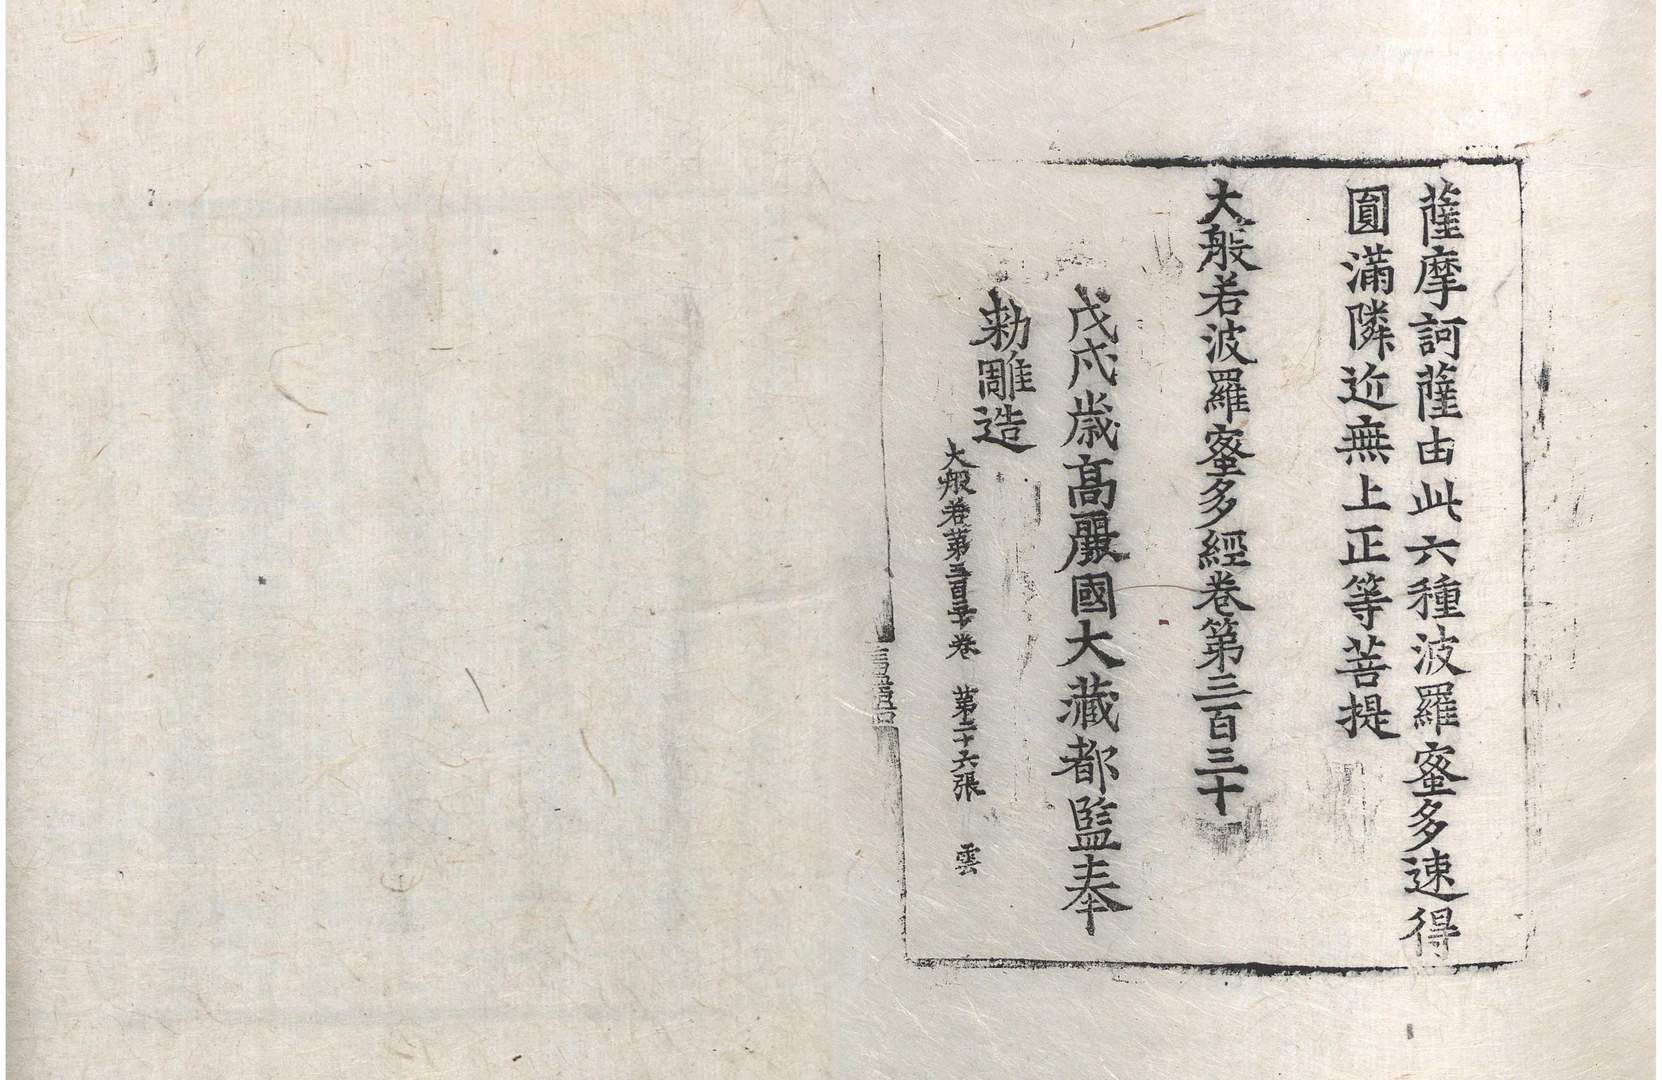 薩摩訶薩由此六種波羅蜜多速得
圓滿隣近無上正等菩提
大般若波羅蜜多經卷第三百三十
戊戌歲高麗國大藏都監奉
勅雕造
大般卷第三百三十卷 第二十六張 雲